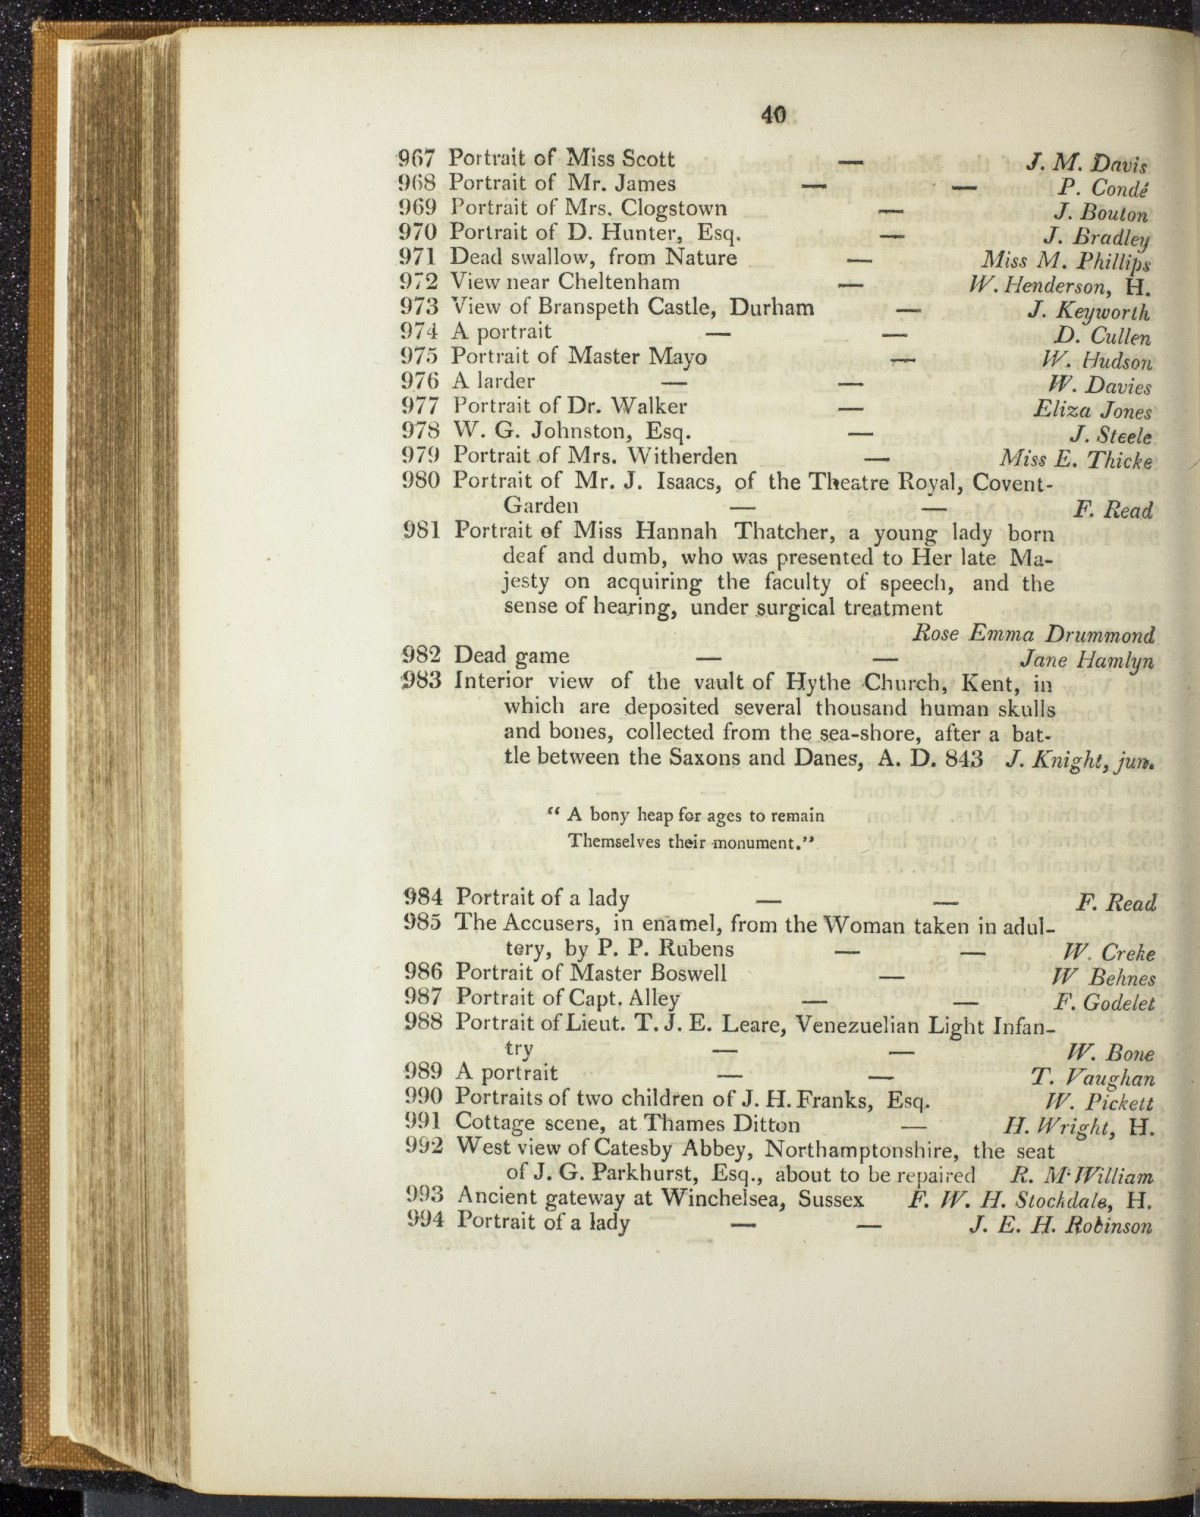 40
967 Portrait of Miss Scott — J. M. Davis
968 Portrait of Mr. James — — P. Condé
969 Portrait of Mrs. Clogstown — J. Bouton
970 Portrait of D. Hunter, Esq. — J. Bradley
971 Dead swallow, from Nature — Miss M. Phillips
972 View near Cheltenham — W. Henderson, H.
973 View of Branspeth Castle, Durham — J. Keyworth
974 A portrait — — D. Cullen
975 Portrait of Master Mayo — W. Hudson
976 A larder — — W. Davies
977 Portrait of Dr. Walker — Eliza Jones
978 W. G. Johnston, Esq. — J. Steele
979 Portrait of Mrs. Witherden — Miss E. Thicke
980 Portrait of Mr. J. Isaacs, of the Theatre Royal, Covent-
Garden — — F. Read
981 Portrait of Miss Hannah Thatcher, a young lady born
deaf and dumb, who was presented to Her late Ma-
jesty on acquiring the faculty of speech, and the
sense of hearing, under surgical treatment
Rose Emma Drummond
982 Dead game — — Jane Hamlyn
983 Interior view of the vault of Hythe Church, Kent, in
which are deposited several thousand human skulls
and bones, collected from the sea-shore, after a bat-
tle between the Saxons and Danes, A. D. 843 J. Knight, jun.
“ A bony heap for ages to remain
Themselves their monument.”
984 Portrait of a lady — — F. Read
985 The Accusers, in enamel, from the Woman taken in adul-
tery, by P. P. Rubens — — W. Creke
986 Portrait of Master Boswell — W Behnes
987 Portrait of Capt. Alley — — F. Godelet
988 Portrait of Lieut. T. J. E. Leare, Venezuelian Light Infan-
try — — W. Bone
989 A portrait — — T. Vaughan
990 Portraits of two children of J. H. Franks, Esq. W. Pickett
991 Cottage scene, at Thames Ditton — H. Wright, H.
992 West view of Catesby Abbey, Northamptonshire, the seat
of J. G. Parkhurst, Esq., about to be repaired R. M‘William
993 Ancient gateway at Winchelsea, Sussex F. W. H. Stockdale, H.
994 Portrait of a lady — — J. E. H. Robinson